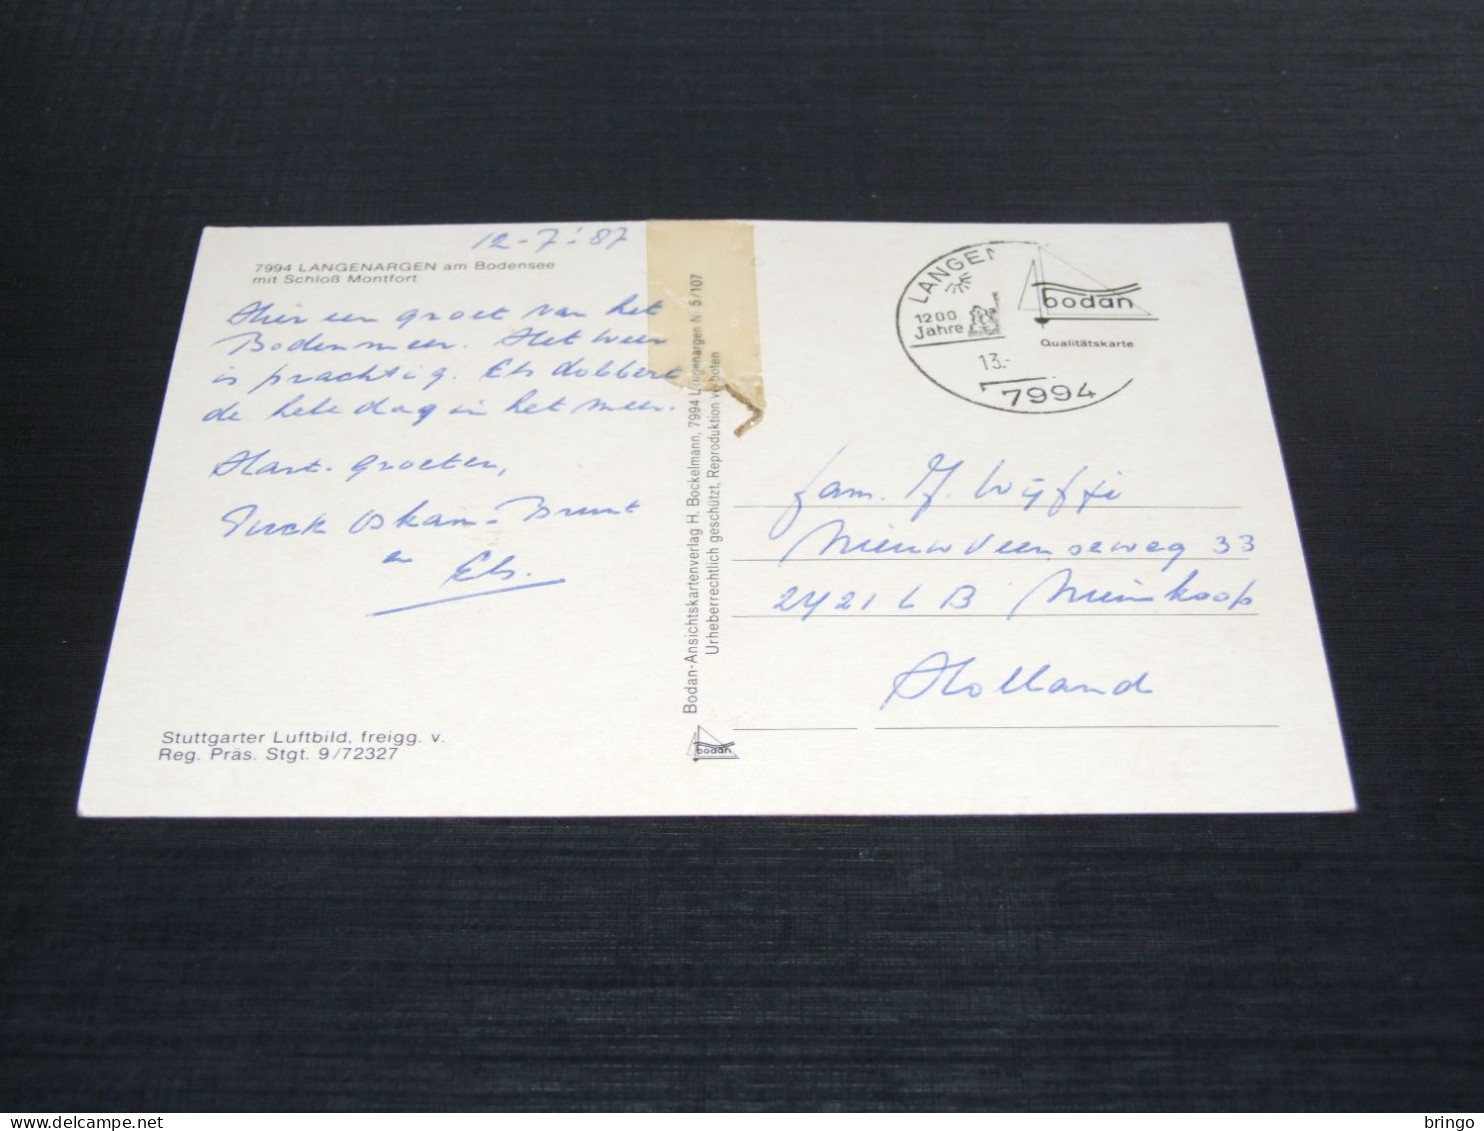 12-7-'87
7994 LANGENARGEN am Bodensee
mit Schloß Montfort
Hier een groet van het
Bodenmeer. Het weer
is prachtig. Els dobbert
de hele dag in het meer.
Hart. groeten,
en
Els.
Stuttgarter Luftbild, freigg. v.
Reg. Präs. Stgt. 9/72327
Bodan-Ansichtskartenverlag H. Bockelmann, 7994 Langenargen Nr. 5/107
Urheberrechtlich geschützt, Reproduktion verboten
bodan
LANGEN
1200
Jahre
13.-
7994
bodan
Qualitätskarte
fam.
Nieuwveenseweg 33
2421 LB Nieuwkoop
Holland
bringo